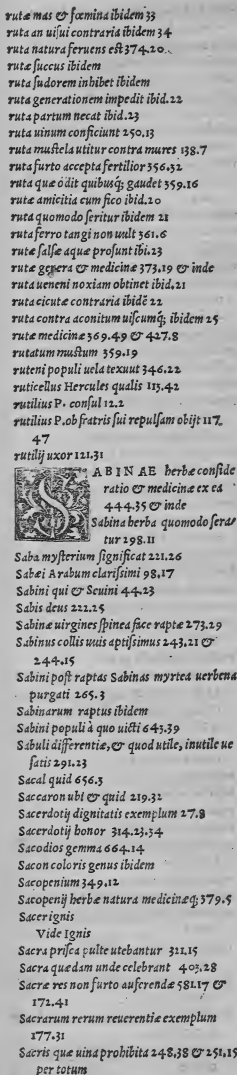 rutæ mas & fœmina ibidem 33
ruta an uisui contraria ibidem 34
ruta natura feruens est 374.20
rutæ succus ibidem
ruta sudorem inhibet ibidem
ruta generationem impedit ibid.22
ruta partum necat ibid.23
ruta uinum conficiunt 250.13
ruta mustela utitur contra mures 138.7
ruta furto accepta fertilior 356.32
ruta quæ odit quibusq; gaudet 359.16
rutæ amicitia cum fico ibid.20
ruta quomodo seritur ibidem 21
ruta ferro tangi non uult 361.6
rutæ salsæ aquæ prosunt ibi.23
rutæ genera & medicinæ 373.19 & inde
ruta ueneni noxiam obtinet ibid.21
ruta cicutæ contraria ibidē 22
ruta contra aconitum uiscumq; ibidem 25
rutæ medicinæ 369.49 & 427.8
rutatum mustum 359.19
ruteni populi uela texuut 346.22
ruticellus Hercules qualis 113.42
rutilius P. consul 12.2
rutilius P. ob fratris sui repulsam obijt 117.
47
rutilij uxor 121.31
SABINAE herbæ conside
ratio & medicinæ ex ea
444.35 & inde
Sabina herba quomodo sera-
tur 198.11
Saba mysterium significat 221.26
Sabæi Arabum clarissimi 98.17
Sabini qui & Seuini 44.23
Sabis deus 222.25
Sabinæ uirgines spinea face raptæ 273.29
Sabinus collis uuis aptissimus 243.21 &
244.15
Sabini post raptas Sabinas myrtea uerbena
purgati 265.3
Sabinarum raptus ibidem
Sabini populi à quo uicti 643.39
Sabuli differentiæ, & quod utile, inutile ue
satis 291.23
Sacal quid 656.3
Saccaron ubi & quid 219.32
Sacerdotij dignitatis exemplum 27.8
Sacerdotij honor 314.23.34
Sacodios gemma 664.14
Sacon coloris genus ibidem
Sacopenium 349.12
Sacopenij herbæ natura medicinæq; 379.5
Sacer ignis
Vide Ignis
Sacra prisca pulte utebantur 311.15
Sacra quædam unde celebrant 403.28
Sacræ res non furto auferendæ 581.17 &
172.41
Sacrarum rerum reuerentiæ exemplum
177.31
Sacris quæ uina prohibita 248.38 & 251.15
per totum